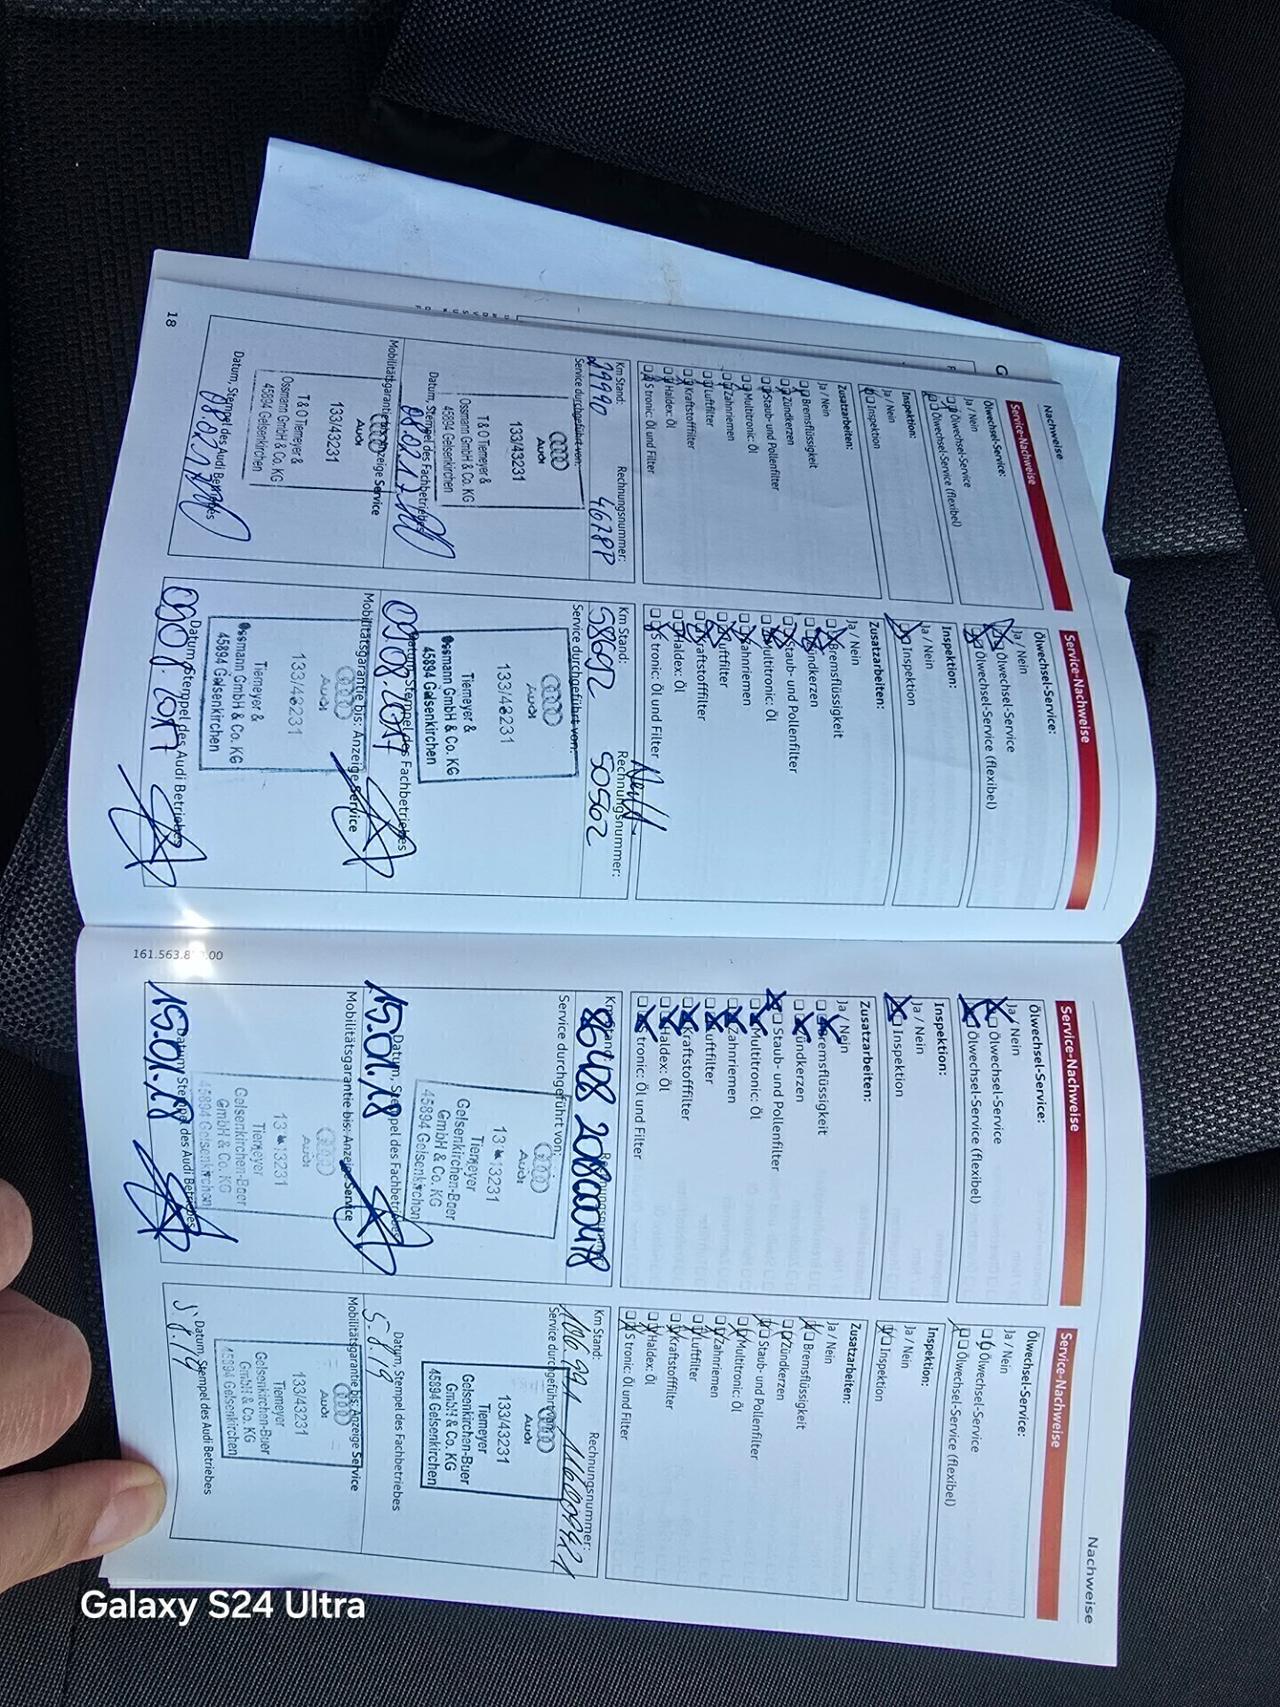 Nachweise
Service-Nachweise
Ölwechsel-Service:
Ja / Nein
Ölwechsel-Service
Ölwechsel-Service (flexibel)
Inspektion:
Ja / Nein
Inspektion
Zusatzarbeiten:
Ja / Nein
Bremsflüssigkeit
Zündkerzen
Staub- und Pollenfilter
Multitronic: Öl
Zahnriemen
Luftfilter
Kraftstofffilter
Haldex: Öl
S tronic: Öl und Filter
Km Stand: Rechnungsnummer:
Service durchgeführt von:
Audi
133/43231
T & O Tiemeyer &
Ossmann GmbH & Co. KG
45894 Gelsenkirchen
Datum, Stempel des Fachbetriebes
Mobilitätsgarantie bis: Anzeige Service
Audi
133/43231
T & O Tiemeyer &
Ossmann GmbH & Co. KG
45894 Gelsenkirchen
Datum, Stempel des Audi Betriebes
18
Service-Nachweise
Ölwechsel-Service:
Ja / Nein
Ölwechsel-Service
Ölwechsel-Service (flexibel)
Inspektion:
Ja / Nein
Inspektion
Zusatzarbeiten:
Ja / Nein
Bremsflüssigkeit
Zündkerzen
Staub- und Pollenfilter
Multitronic: Öl
Zahnriemen
Luftfilter
Kraftstofffilter
Haldex: Öl
S tronic: Öl und Filter
Km Stand: Rechnungsnummer:
58692 50562
Service durchgeführt von:
Audi
133/43231
Tiemeyer &
Ossmann GmbH & Co. KG
45894 Gelsenkirchen
Datum, Stempel des Fachbetriebes
09.08.2017
Mobilitätsgarantie bis: Anzeige Service
Audi
133/43231
Tiemeyer &
Ossmann GmbH & Co. KG
45894 Gelsenkirchen
Datum, Stempel des Audi Betriebes
09.08.2017
161.563.8
.00
Service-Nachweise
Ölwechsel-Service:
Ja / Nein
Ölwechsel-Service
Ölwechsel-Service (flexibel)
Inspektion:
Ja / Nein
Inspektion
Zusatzarbeiten:
Ja / Nein
Bremsflüssigkeit
Zündkerzen
Staub- und Pollenfilter
Multitronic: Öl
Zahnriemen
Luftfilter
Kraftstofffilter
Haldex: Öl
S tronic: Öl und Filter
Km Stand: Rechnungsnummer:
Service durchgeführt von:
Audi
Tiemeyer
Gelsenkirchen-Buer
GmbH & Co. KG
45894 Gelsenkirchen
Datum, Stempel des Fachbetriebes
15.01.18
Mobilitätsgarantie bis: Anzeige Service
Audi
Tiemeyer
Gelsenkirchen-Buer
GmbH & Co. KG
45894 Gelsenkirchen
Datum, Stempel des Audi Betriebes
15.01.18
Nachweise
Service-Nachweise
Ölwechsel-Service:
Ja / Nein
Ölwechsel-Service
Ölwechsel-Service (flexibel)
Inspektion:
Ja / Nein
Inspektion
Zusatzarbeiten:
Ja / Nein
Bremsflüssigkeit
Zündkerzen
Staub- und Pollenfilter
Multitronic: Öl
Zahnriemen
Luftfilter
Kraftstofffilter
Haldex: Öl
S tronic: Öl und Filter
Km Stand: Rechnungsnummer:
106.991
Service durchgeführt von:
Audi
133/43231
Tiemeyer
Gelsenkirchen-Buer
GmbH & Co. KG
45894 Gelsenkirchen
Datum, Stempel des Fachbetriebes
5.8.19
Mobilitätsgarantie bis: Anzeige Service
Audi
133/43231
Tiemeyer
Gelsenkirchen-Buer
GmbH & Co. KG
45894 Gelsenkirchen
Datum, Stempel des Audi Betriebes
5.8.19
Galaxy S24 Ultra